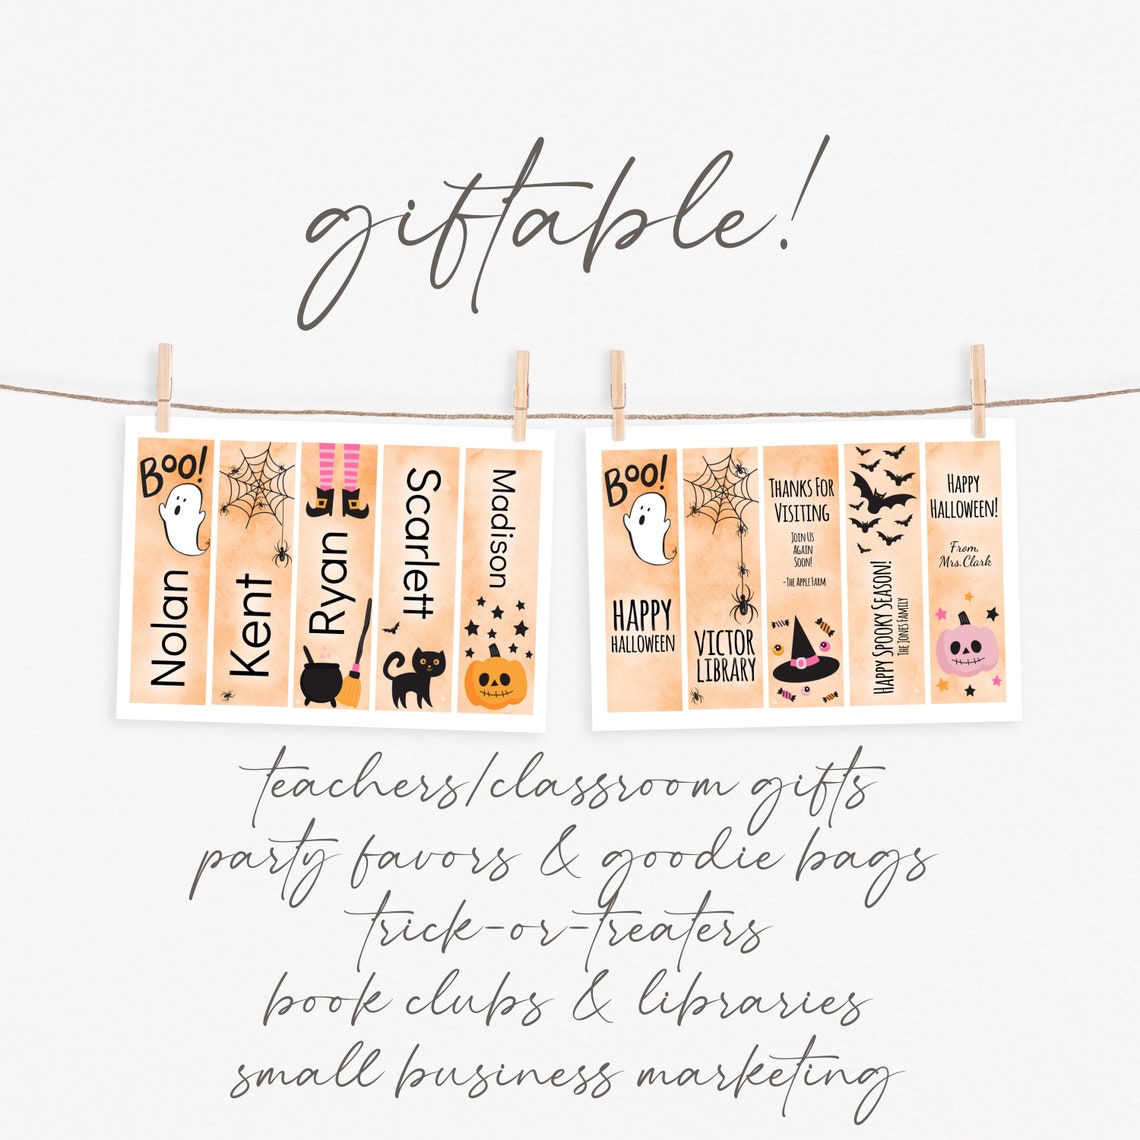 giftable!
BOO!
Nolan
Kent
Ryan
Scarlett
Madison
BOO!
HAPPY
HALLOWEEN
VICTOR
LIBRARY
THANKS FOR
VISITING
JOIN US
AGAIN
SOON!
-THE APPLE FARM
HAPPY SPOOKY SEASON!
THE JONES FAMILY
HAPPY
HALLOWEEN!
From,
Mrs. Clark
teachers/classroom gifts
party favors & goodie bags
trick-or-treaters
book clubs & libraries
small business marketing